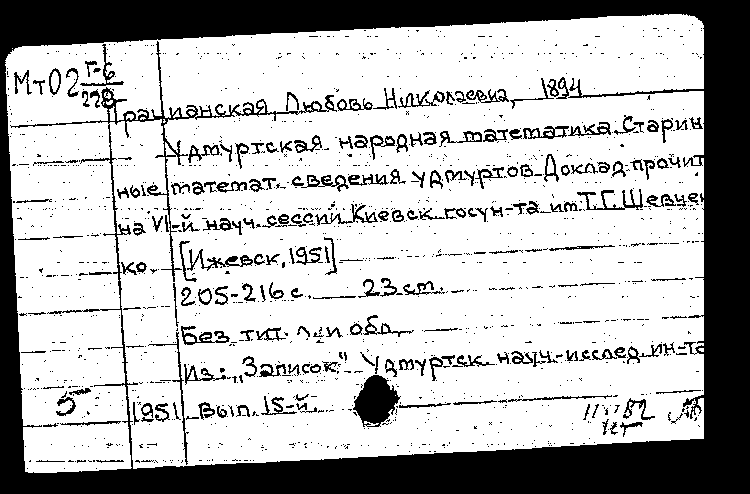 Мт02 Г-6
278
Грацианская, Любовь Николаевна, 1894
Удмуртская народная математика. Старин
ные математ. сведения удмуртов. Доклад прочит
на VI-й науч. сессии Киевск. госун-та им. Т.Г. Шевчен
ко. [Ижевск, 1951]
205-216 с. 23 см.
Без тит. л. и обл.
Из: „Записок" Удмуртск. науч.-исслед. ин-та
5 1951 Вып. 15-й.
82